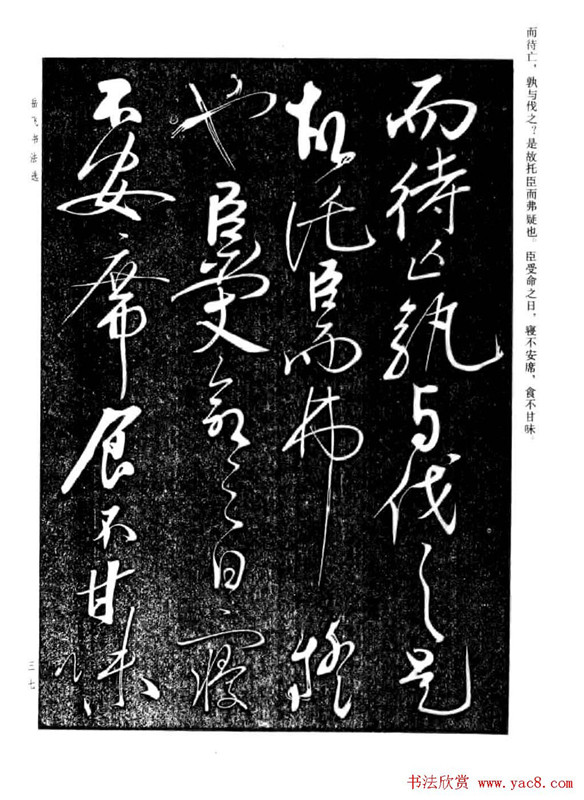 而待亡，孰与伐之？是故托臣而弗疑也。臣受命之日，寝不安席，食不甘味。
而待亡孰与伐之是
故托臣而弗疑
也臣受命之日寝
不安席食不甘味
岳飞书法选
三七
书法欣赏 www.yac8.com